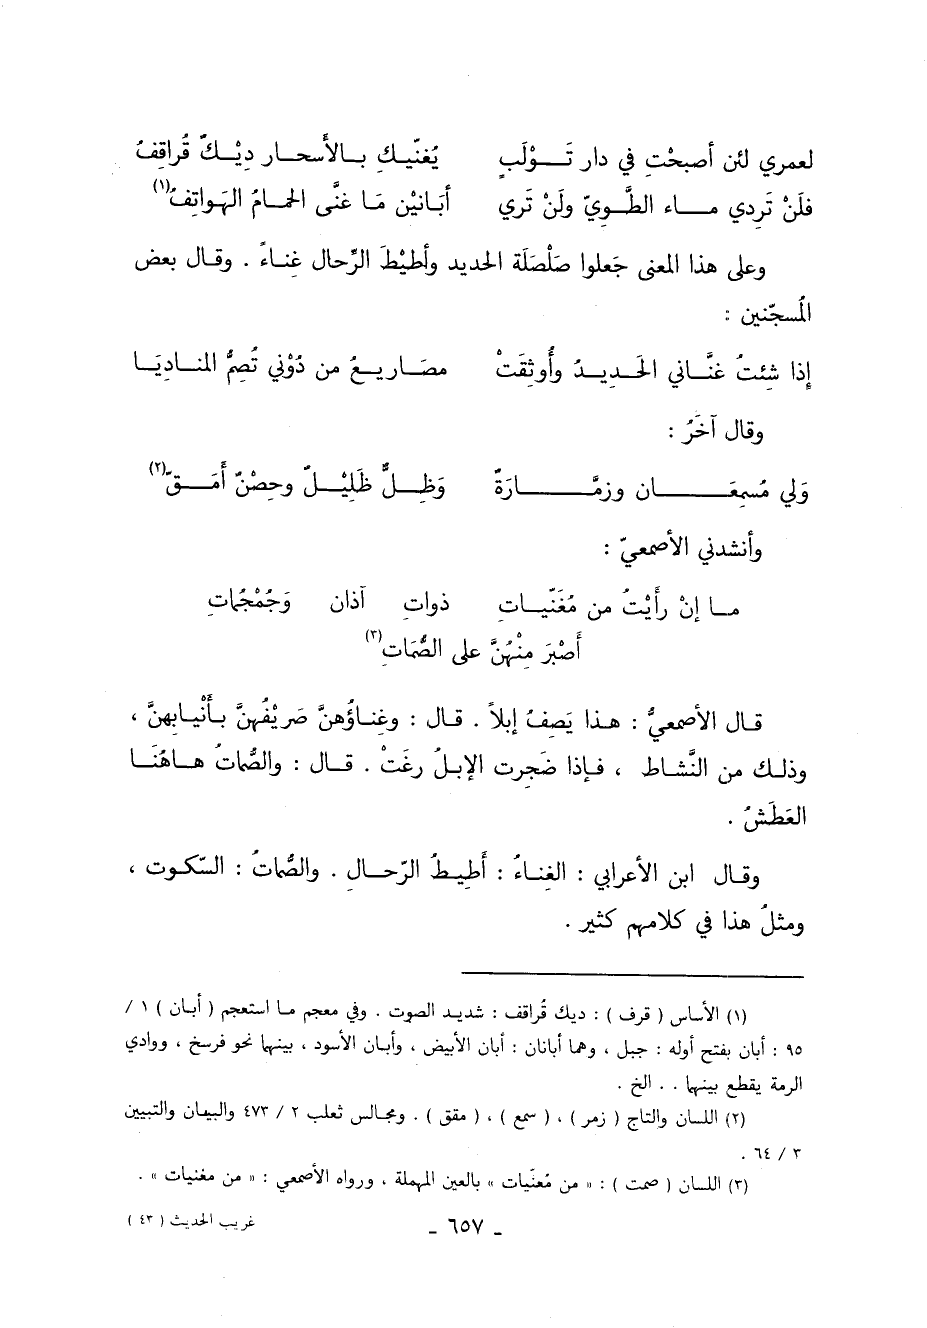 لعمري لئن أصبحْتِ في دار تَوْلَبٍ يُغنّيكِ بالأَسحارِ دِيْكٌ قُراقِفُ
فلَنْ تَرِدي ماء الطَّويّ ولَنْ تَري أبَانَيْن مَا غنَّى الحَمامُ الهَواتِفُ(١)
وعلى هذا المعنى جَعلوا صَلْصَلة الحديد وأطيْطَ الرِّحال غناءً . وقال بعض
المُسجّنين :
إذا شِئتُ غنَّاني الحَديدُ وأُوثِقَتْ مصَاريعُ من دُوْني تُصِمُّ المناديَا
وقال آخَرُ :
وَلي مُسمِعَان وزمَّارَةٌ وَظِلٌّ ظَلِيْلٌ وحِصْنٌ أمَقّ(٢)
وأنشدني الأصمعيّ :
ما إنْ رأَيْتُ من مُغَنّياتِ ذواتِ آذان وَجُمْجُماتِ
أَصْبَرَ مِنْهُنَّ على الصُّمَاتِ(٣)
قال الأصمعيُّ : هذا يَصِفُ إبلاً . قال : وغناؤُهنَّ صَريْفُهنَّ بأَنْيابهنَّ ،
وذلك من النَّشاط ، فإذا ضَجِرت الإبلُ رغَتْ . قال : والصُّماتُ هاهُنَا
العَطَشُ .
وقال ابن الأعرابي : الغِناءُ : أَطيطُ الرِّحالِ . والصُّماتُ : السّكوت ،
ومثلُ هذا في كلامهم كثير .
(١) الأساس ( قرف ) : ديك قُراقف : شديد الصوت . وفي معجم ما استعجم ( أبان ) ١ /
٩٥ : أبان بفتح أوله : جبل ، وهما أبانان : أبان الأبيض ، وأبان الأسود ، بينهما نحو فرسخ ، ووادي
الرمة يقطع بينهما . . الخ .
(٢) اللسان والتاج ( زمر ) ، ( سمع ) ، ( مقق ) . ومجالس ثعلب ٢ / ٤٧٣ والبيان والتبيين
٣ / ٦٤ .
(٣) اللسان ( صمت ) : « من مُعنّيات » بالعين المهملة ، ورواه الأصمعي : « من مغنيات » .
ـ ٦٥٧ ـ غريب الحديث ( ٤٣ )